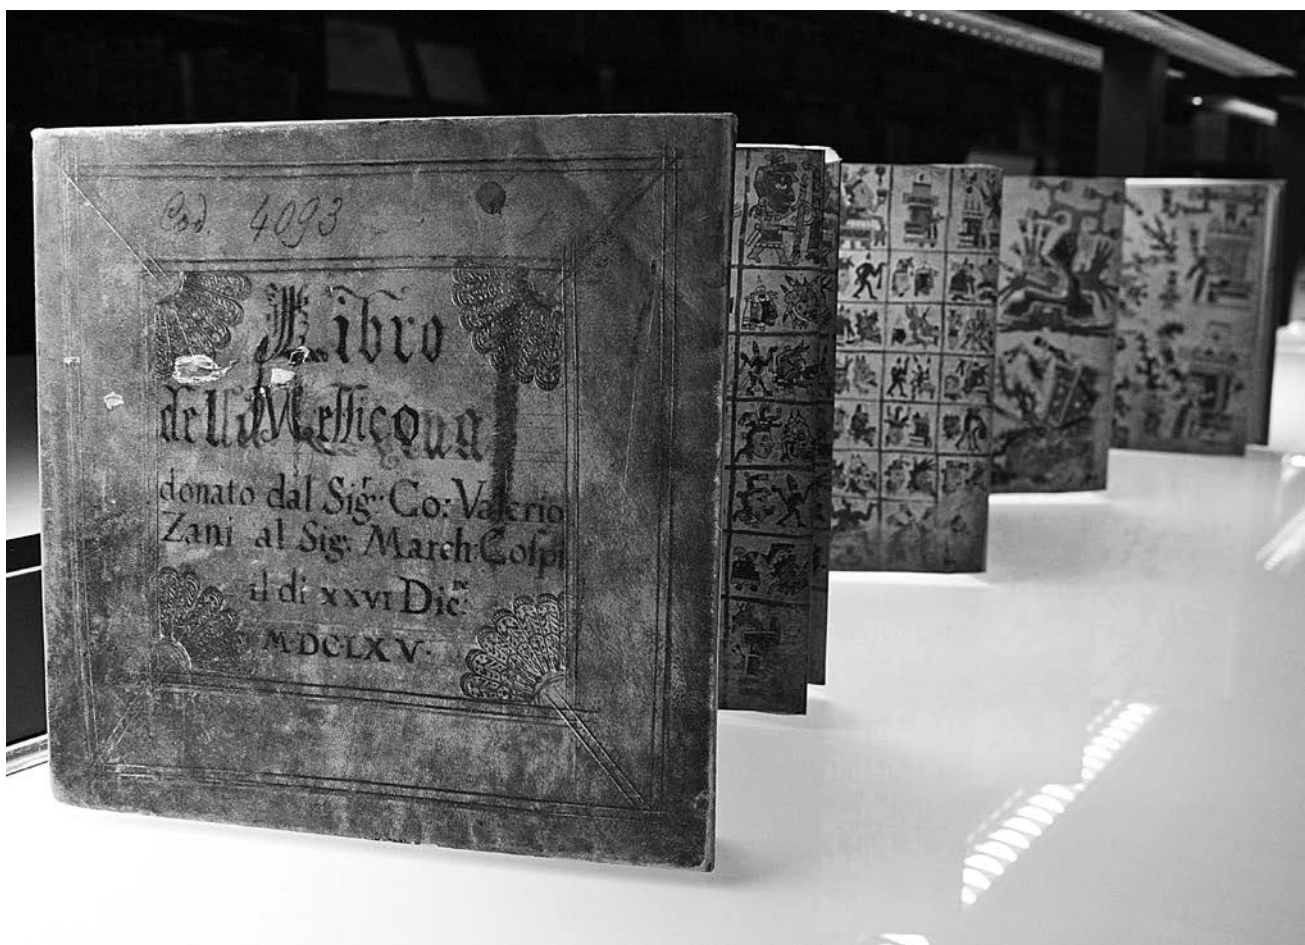 Cod. 4093
Libro
della Messicona
donato dal Sig.r Co: Valerio
Zani al Sig: March: Cospi
il di XXVI Dic.re
M·DC·LXV·